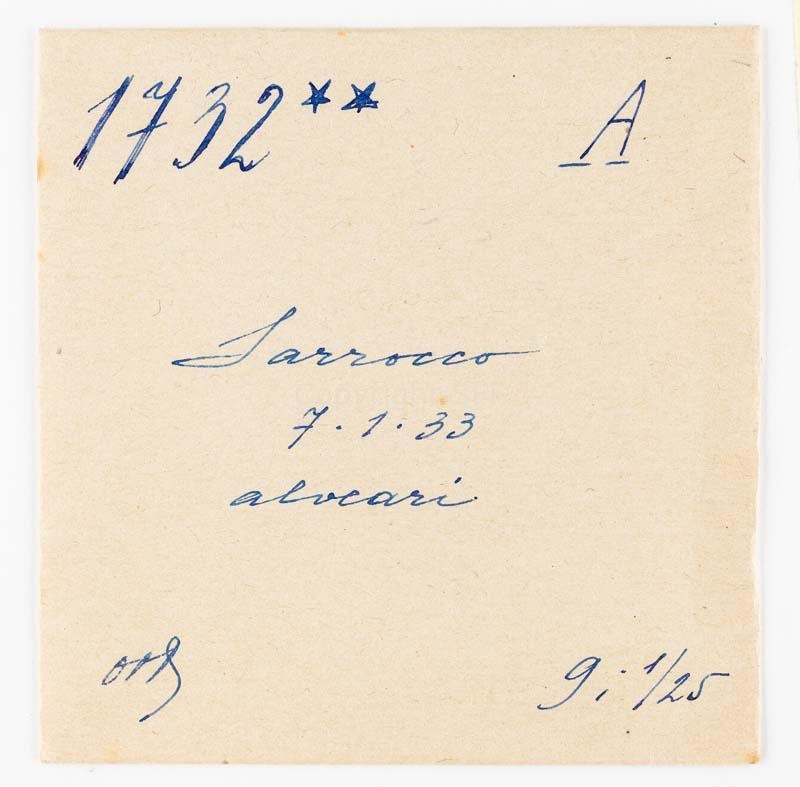 1732** A
Sarrocco
7.1.33
alveari
9; 1/25